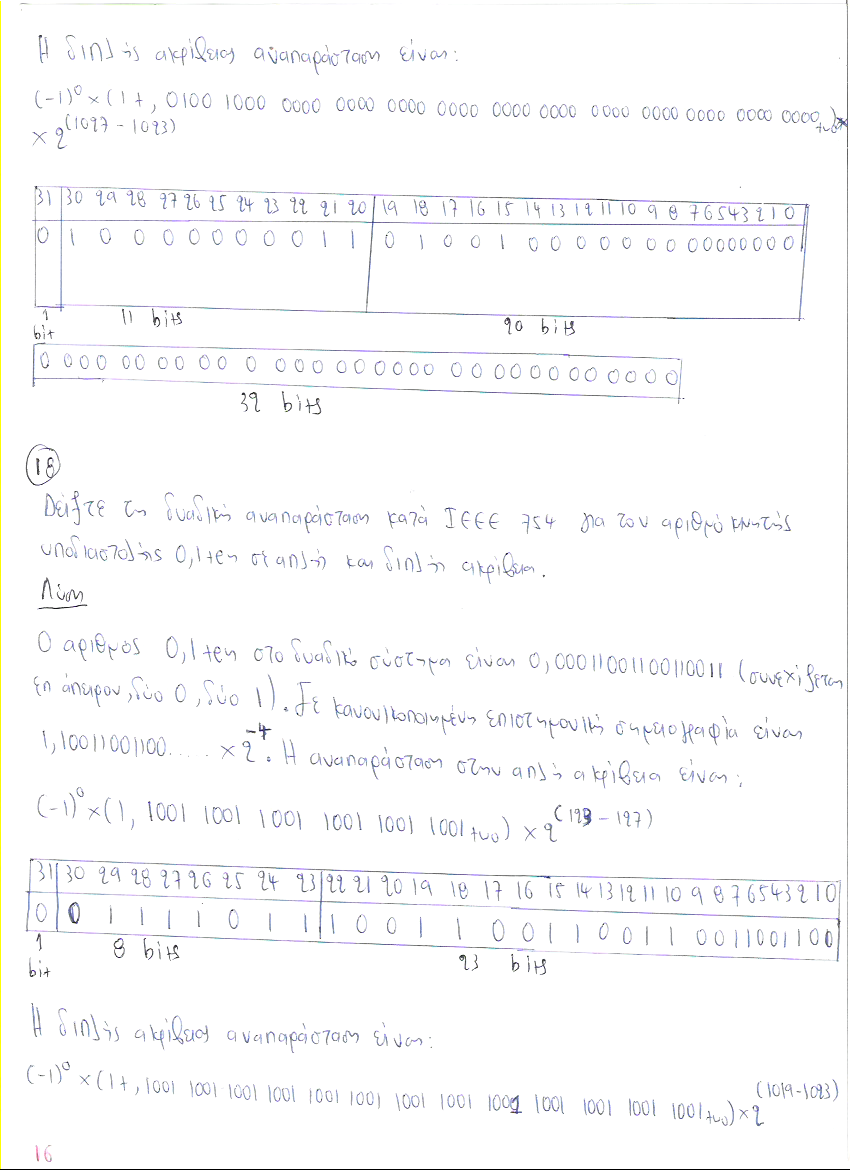 Η διπλής ακρίβειας αναπαράσταση είναι:
(-1)⁰ × (1 + , 0100 1000 0000 0000 0000 0000 0000 0000 0000 0000 0000 0000 0000 two) ×
× 2^(1027 - 1023)
31 30 29 28 27 26 25 24 23 22 21 20 19 18 17 16 15 14 13 12 11 10 9 8 7 6 5 4 3 2 1 0
0 1 0 0 0 0 0 0 0 0 1 1 0 1 0 0 1 0 0 0 0 0 0 0 0 0 0 0 0 0 0 0
1 bit 11 bits 20 bits
0 0 0 0 0 0 0 0 0 0 0 0 0 0 0 0 0 0 0 0 0 0 0 0 0 0 0 0 0 0 0 0
32 bits
18
Δείξτε τη δυαδική αναπαράσταση κατά IEEE 754 για τον αριθμό κινητής
υποδιαστολής 0,1 ten σε απλή και διπλή ακρίβεια.
Λύση
Ο αριθμός 0,1 ten στο δυαδικό σύστημα είναι 0,00011001100110011 (συνεχίζεται
επ άπειρον, δύο 0, δύο 1). Σε κανονικοποιημένη επιστημονική σημειογραφία είναι
1,10011001100.... × 2⁻⁴. Η αναπαράσταση στην απλή ακρίβεια είναι:
(-1)⁰ × (1, 1001 1001 1001 1001 1001 1001 two) × 2^(123 - 127)
31 30 29 28 27 26 25 24 23 22 21 20 19 18 17 16 15 14 13 12 11 10 9 8 7 6 5 4 3 2 1 0
0 0 1 1 1 1 0 1 1 1 0 0 1 1 0 0 1 1 0 0 1 1 0 0 1 1 0 0 1 1 0 0
1 bit 8 bits 23 bits
Η διπλής ακρίβειας αναπαράσταση είναι:
(-1)⁰ × (1 + , 1001 1001 1001 1001 1001 1001 1001 1001 1001 1001 1001 1001 1001 two) × 2^(1019 - 1023)
16